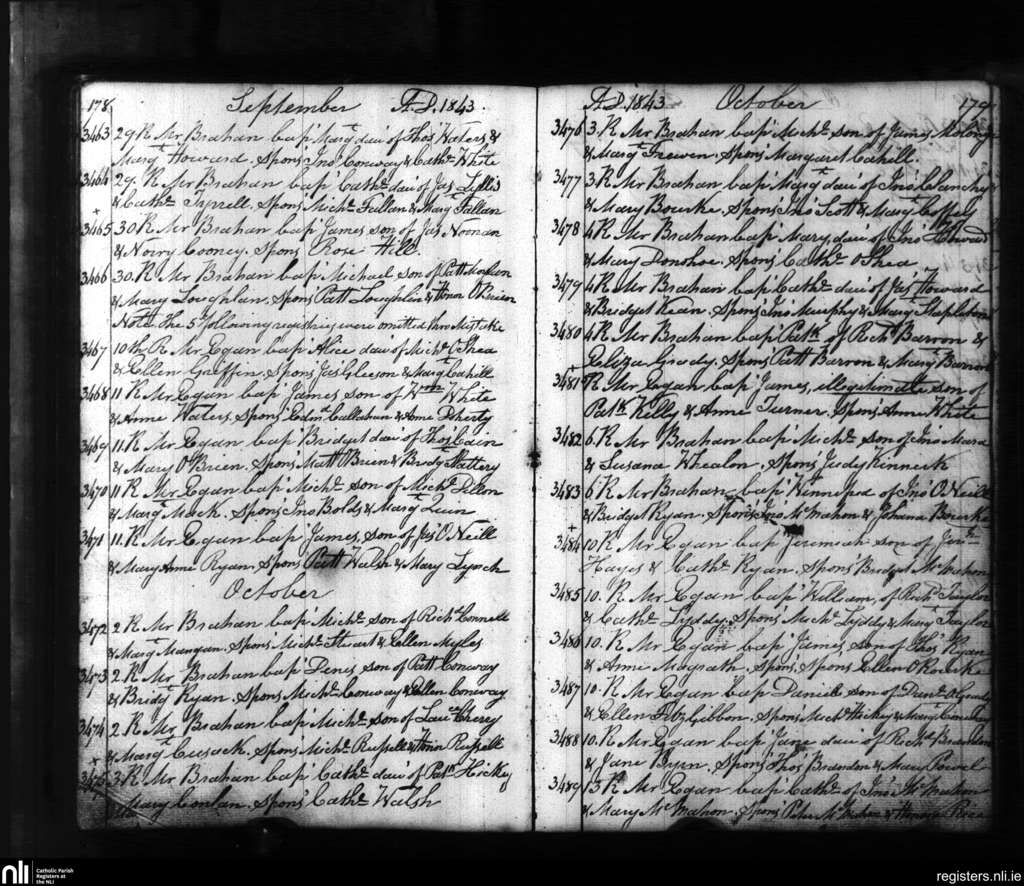 178 September A.D. 1843.
3463 29 R Mr Brahan bap' Margt dau' of Thos' Waters &
Margt Howard. Spons' Jno' Conway & Cathe White
3464 29. R Mr Brahan bap' Cathe dau' of Jas Lillis
& Cathe Tyrrell. Spons' Michl Fallan & Margt Fallan
+
3465 30 R Mr Brahan bap' James son of Jas Noonan
& Norry Cooney. Spons' Rose Hill.
3466 30. R Mr Brahan bap' Michael son of Patt
& Mary Loughlan. Spons' Patt Loughlin & Honor O'Brien
Note the 5 following registries were omitted thro Mistake
3467 10th R Mr Egan bap' Alice dau' of Michl O'Shea
& Ellen Griffin. Spons' Jas Gleeson & Margt Cahill
3468 11 R Mr Egan bap' James son of Wm White
& Anne Waters Spons' Edmd Callahan & Anne Dherty
3469 11. R Mr Egan bap' Bridget dau' of Thos' Cain
& Mary O'Brien. Spons' Matt O'Brien & Bridy Slattery
3470 11 R Mr Egan bap' Michl son of Michl Dillon
& Margt Mack. Spons' Jno Bolds & Margt Quin
3471 11. R Mr Egan bap' James, son of Jas' O'Neill
& Mary Anne Ryan. Spons' Patt Walsh & Mary Lynch
October
3472 2 R Mr Brahan bap' Michl son of Richd Connell
& Margt Mangan. Spons' Michl Stuart & Ellen Myles
3473 2 R Mr Brahan bap' Denis son of Patt Conway
& Bridy Ryan. Spons' Michl Conway & Ellen Conway
3474 2 R Mr Brahan bap' Michl son of Laurce Cherry
& Margt Cusack. Spons' Michl Russell & Honor Russell
+
3475 3 R Mr Brahan bap' Cathe dau' of Patk Hickey
Mary Conlan. Spons' Cathe Walsh
A.D. 1843 October 179
3476 3. R Mr Brahan bap' Michl son of James Molony
& Margt Frewen. Spons' Margaret Cahill.
3477 3 R Mr Brahan bap' Margt dau' of Jno' Clanchy
& Mary Bourke. Spons' Jno' Scott & Margt Coffey
3478 4 R Mr Brahan bap' Mary, dau' of Jno'
& Mary Donohoe. Spons' Cathe O'Shea
3479 4 R Mr Brahan bap' Cathe dau' of Jas' Howard
& Bridget Kean. Spons' Jno Murphy & Margt Stapleton
3480 4 R Mr Brahan bap' Patk of Richd Barron &
Eliza Grady. Spons' Patt Barron & Margt Barron
+
3481 R Mr Egan bap' James, illegitimate son of
Patk Kelly & Anne Turner. Spons' Anne White
3482 6 R Mr Brahan bap' Michl son of Jno' Mara
& Susana Whealon. Spons' Judy Kinneck
3483 6 R Mr Brahan bap' Winnifred of Jno' O'Neill
& Bridget Ryan. Spons' Jno McMahon & Johana Bourke
+
3484 10 R Mr Egan bap' Jeremiah son of
Hayes & Cathe Ryan. Spons' Bridget McMahon
3485 10. R Mr Egan bap' William, of Richd Taylor
& Cathe Lyddy. Spons' Michl Lyddy & Margt Taylor
3486 10. R Mr Egan bap' James, son of Thos' Ryan
& Anne Magrath. Spons. Spons' Ellen O'Rourke
3487 10. R Mr Egan bap' Daniel son of Danl O'Grady
& Ellen FitzGibbon. Spons' Michl Hickey & Margt
3488 10. R Mr Egan bap' Jane dau' of Richd Brandon
& Jane Byrn. Spons' Thos' Brandon & Mary Powel
3489 3 R Mr Egan bap' Cathe of Jno' McMahon
& Mary McMahon. Spons' Peter McMahon & Honora
nli Catholic Parish
Registers at
the NLI
registers.nli.ie